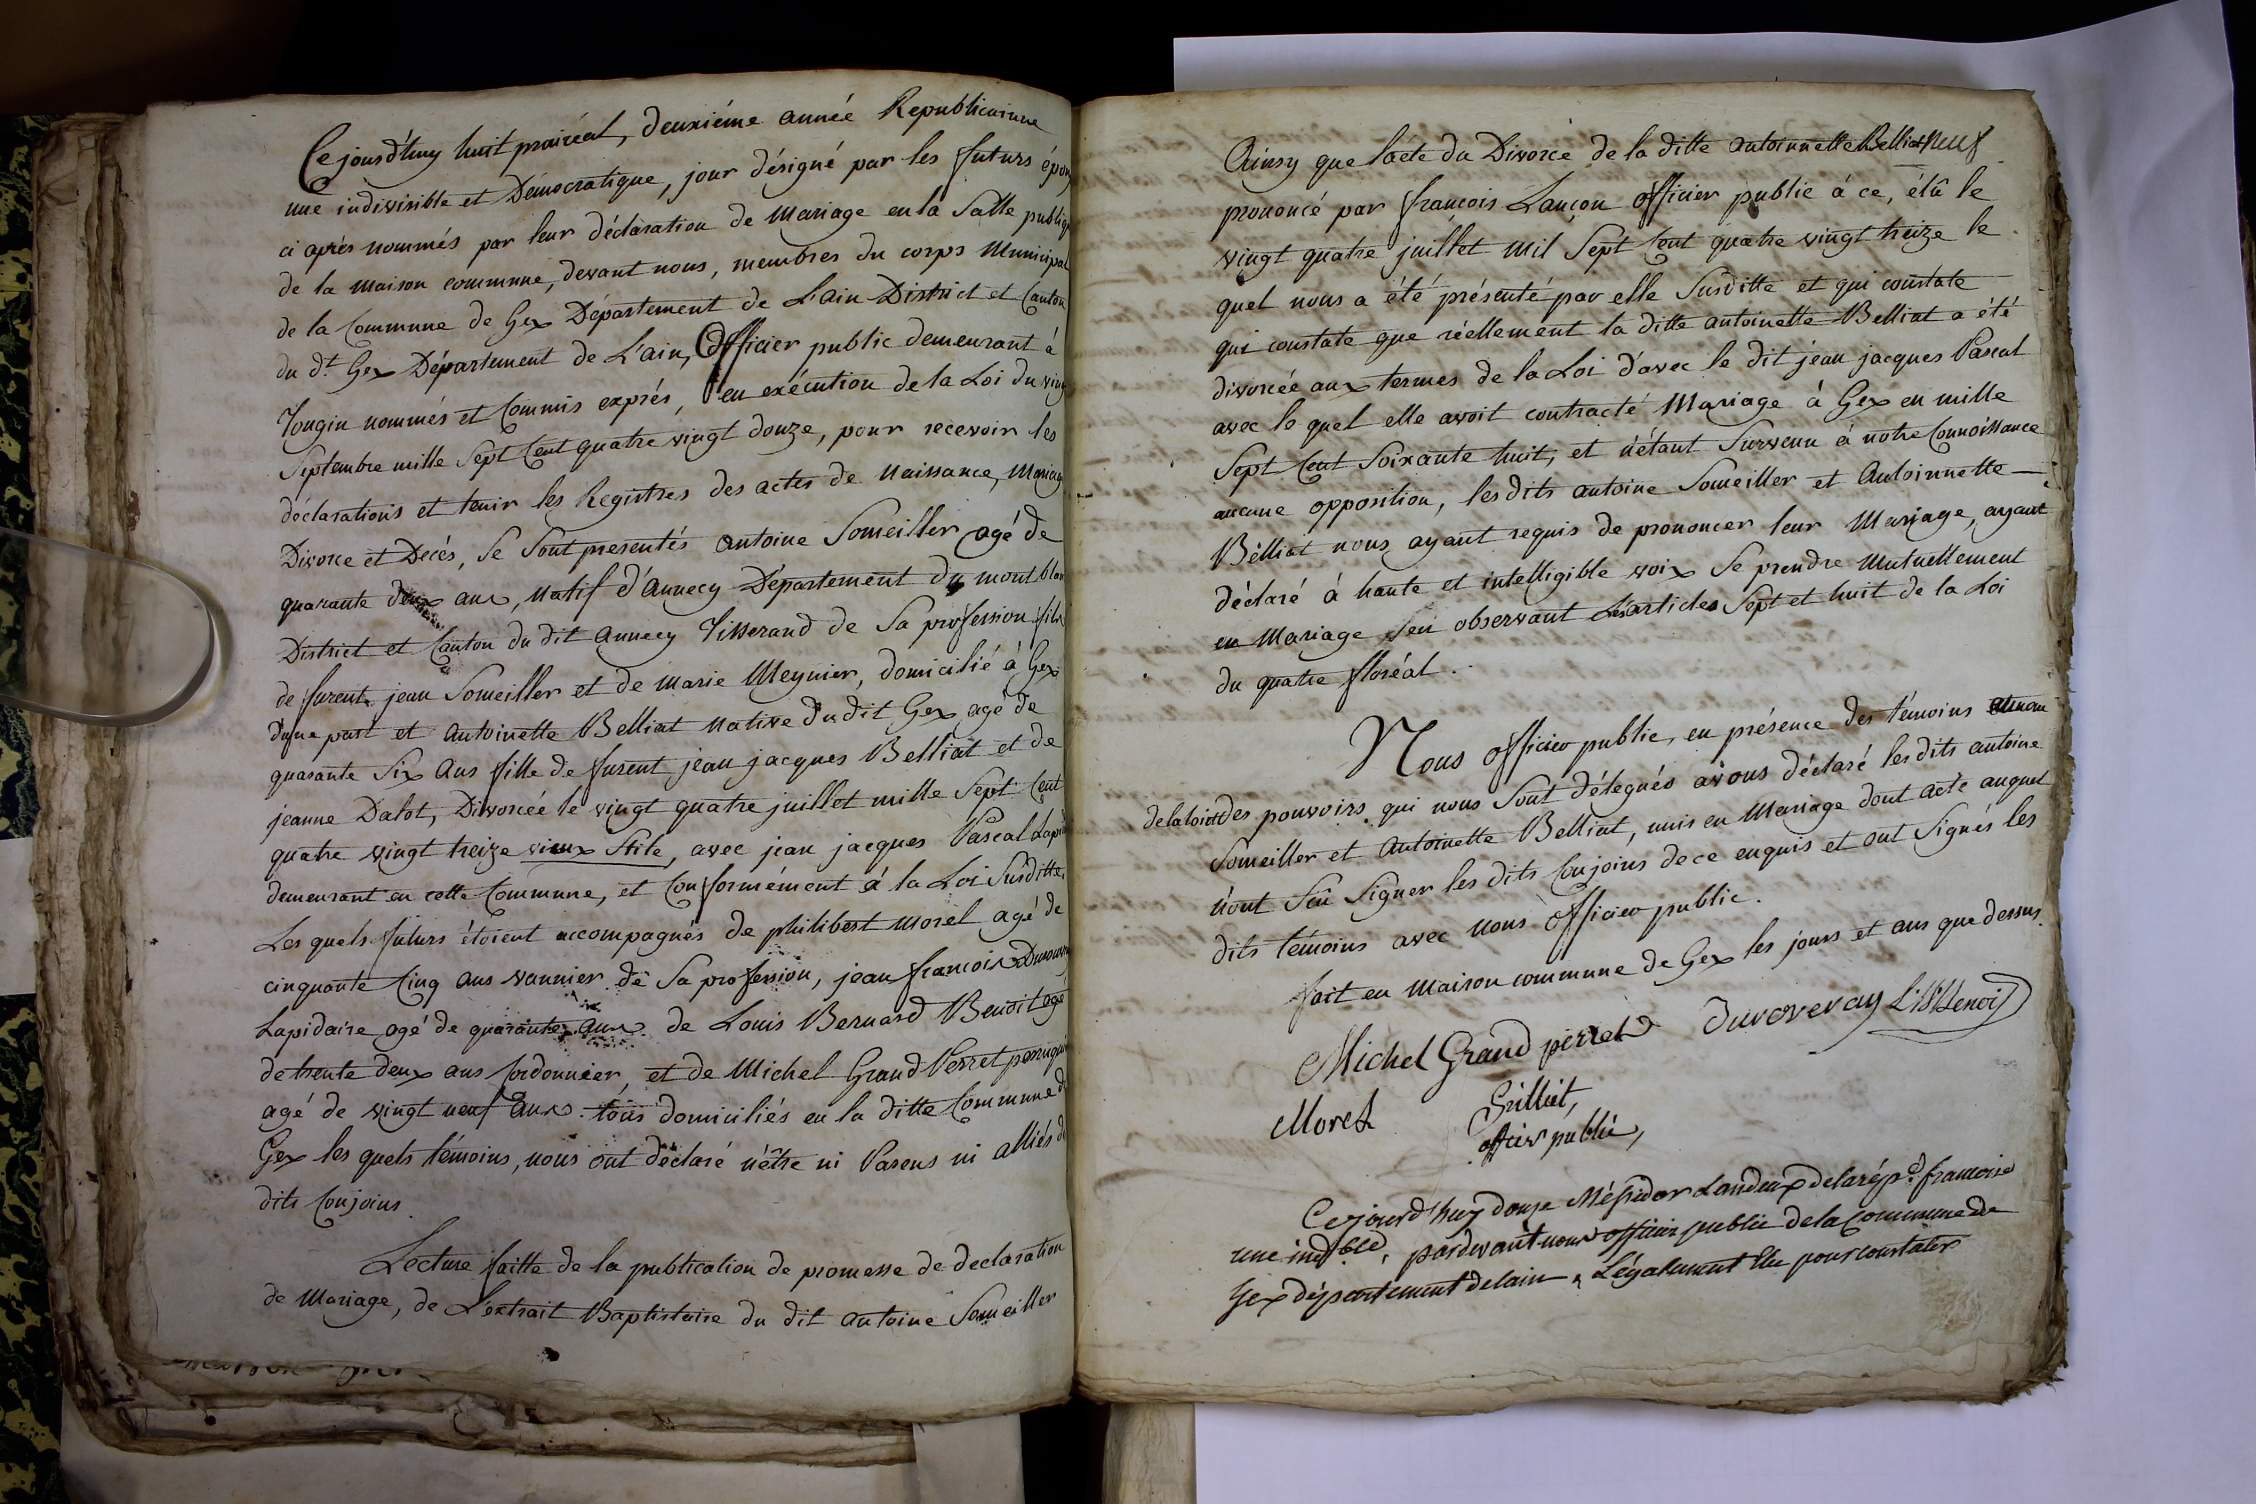 Ce jourd'huy huit prairéal, deuxiéme année Republicainne
une indivisible et Démocratique, jour désigné par les futurs épou
ci aprés nommés par leur déclaration de Mariage en la Salle publiq
de la Maison commune, devant nous, membres du corps Municipal
de la Commune de Gex Département de L'ain District et Canton
du dt. Gex Département de L'ain, Officier public demeurant à
Tougin nommés et Commis exprés, en exécution de la Loi du ving
Septembre mille Sept Cent quatre vingt douze, pour recevoir les
déclarations et tenir les Registres des actes de Naissance, Mariag
Divorce et Decés, Se Sont presentés antoine Someiller agé de
quarante deux ans, Natif d'annecy Département du mont blan
District et Canton du dit annecy Tisserand de Sa profession fils
de furent jean Someiller et de marie Meynier, domicilié à Gex
d'une part et antoinette Belliat Native du dit Gex agé de
quarante Six ans fille de furent jean jacques Belliat et de
jeanne Dalot, Divorcée le vingt quatre juillet mille Sept Cent
quatre vingt treize vieux Stile, avec jean jacques Pascal Lapid
demeurant en cette Commune, et Conformément à la Loi Susditte,
Les quels futurs étoient accompagnés de philibert morel agé de
cinquante Cinq ans vannier de Sa profession, jean francois Duvovray
Lapidaire agé de quarante ans de Louis Bernard Benoit agé
de trente deux ans Cordonnier, et de Michel Grand Perret perruqui
agé de vingt neuf ans tous domiciliés en la ditte Commune d
Gex les quels témoins, nous ont déclaré n'être ni Parens ni alliés d
dits Conjoins
Lecture faitte de la publication de promesse de declaration
de Mariage, de L'extrait Baptistaire du dit antoine Someiller
Ainsy que l'acte du Divorce de la ditte antoinnette Belliat
prononcé par francois Lançon officier public à ce, élû le
vingt quatre juillet mil Sept Cent quatre vingt treize le
quel nous a été présenté par elle Susditte et qui constate
qui constate que réellement la ditte antoinette Belliat a été
divorcée aux termes de la Loi d'avec le dit jean jacques Pascal
avec le quel elle avoit contracté Mariage à Gex en mille
Sept Cent Soixante huit, et n'étant Survenu à notre Connoissance
aucune opposition, lesdits antoine Someiller et Antoinnette
Bélliat nous ayant requis de prononcer leur Mariage, ayant
déclaré à haute et intelligible voix Se prendre Mutuellement
en Mariage Sen observant Les articles Sept et huit de la Loi
du quatre floréal.
Nous officier public, en présence des témoins
de la loi et des pouvoirs qui nous Sont délegués avons déclaré les dits antoine
Someiller et antoinette Belliat, unis en Mariage dont acte auquel
n'ont Scû Signer les dits Conjoins de ce enquis et ont Signés les
dits témoins avec nous officier public.
fait en Maison commune de Gex les jours et ans que dessus.
Michel Grand perret Duvoveray L. B. Benoit
Morel
Grilliet,
officier public,
Ce jourd'huy douze Méssidor Landeux de la rép.e francoise
une ind.ble, pardevant nous officier public de la Commune de
Gex département de lain, Légalement Elu pour constater